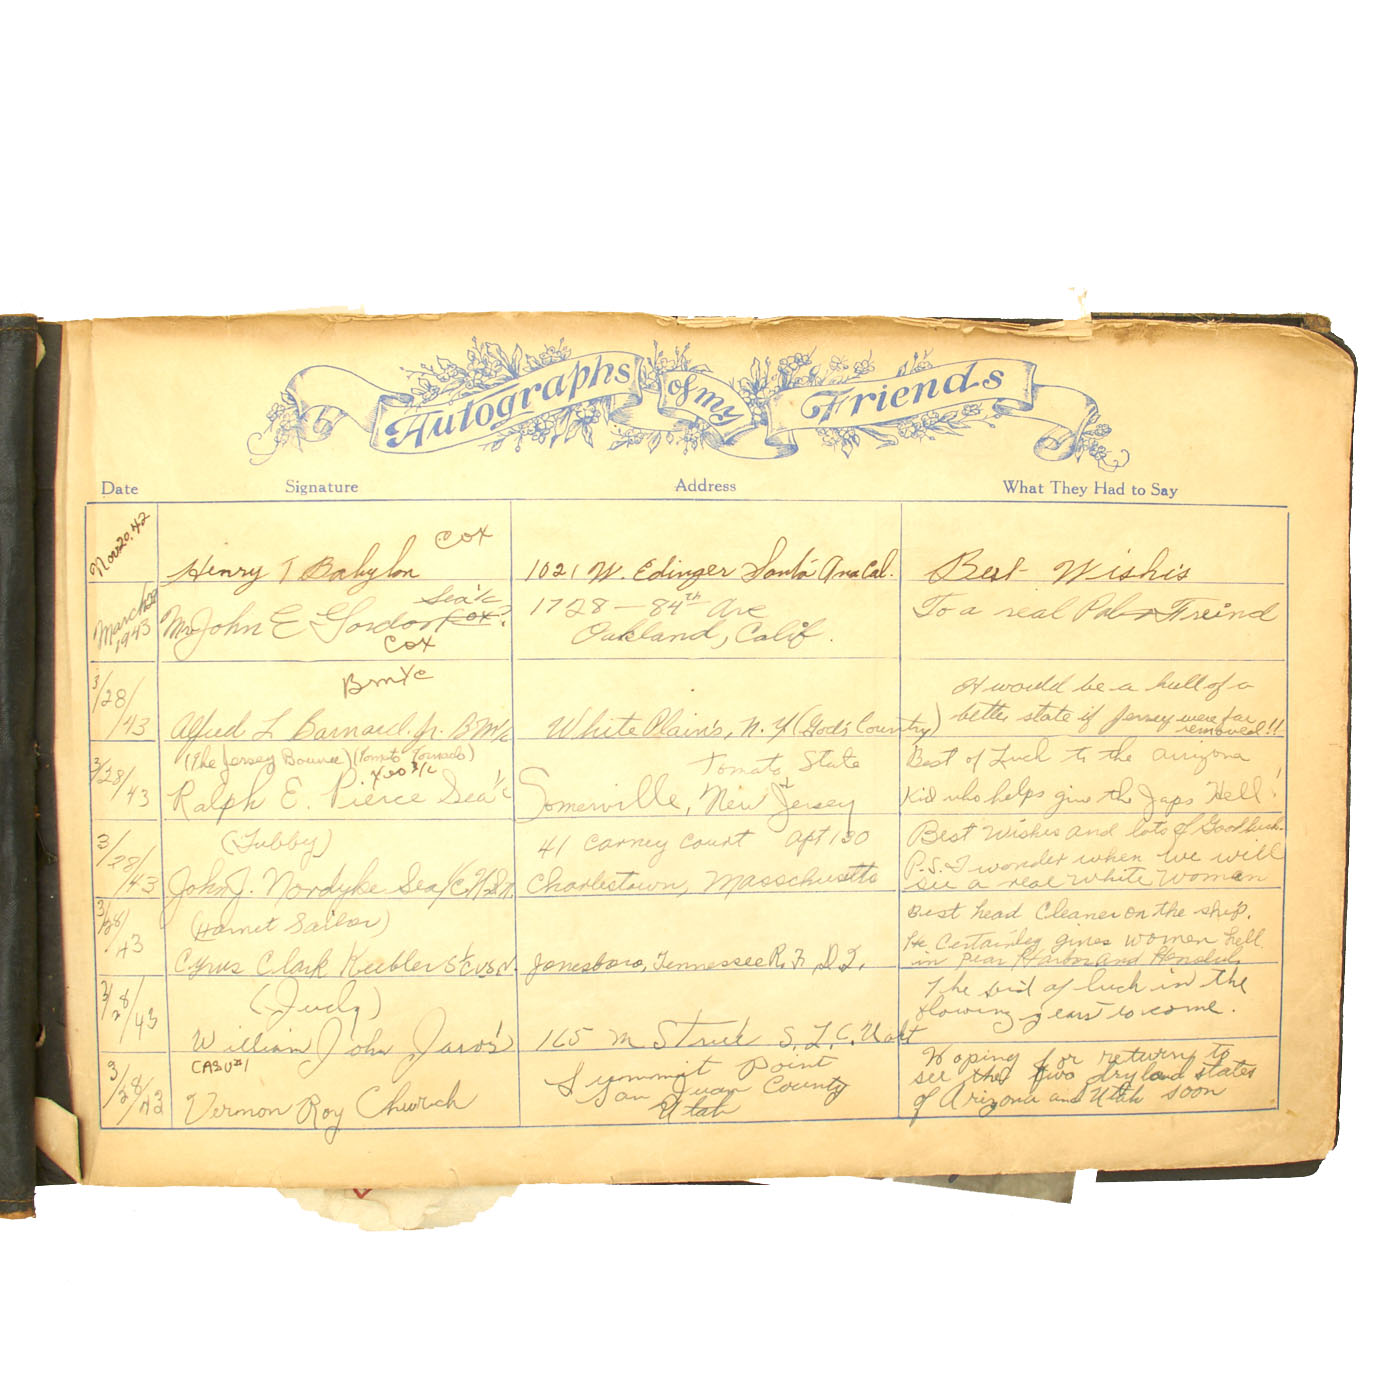 Autographs of my Friends
Date Signature Address What They Had to Say
Nov 20, 42 Henry T Babylon Cox 1021 W. Edinger Santa Ana Cal. Best Wishis
March 28 1943 Mr John E Gordon Sea 1/c Cox? Cox
1728 - 84th Ave
Oakland, Calif.
To a real Pal & Freind
3/28/43 Bm 1/c
Alfred L Barnard. jr. B M 1/c
White Plain's, N. Y (God's Country)
It would be a hull of a
better state if Jersey were far
removed!!
3/28/43 (The Jersey Bounce) (Tomato Tornado)
Yeo 3/c
Ralph E. Pierce Sea 1/c
Tomato State
Somerville, New Jersey
Best of Luck to the arizona
Kid who helps give the Japs Hell!
3/28/43 (Tubby)
John J. Nordyke Sea 1/c, U.S.N.
41 Carney Court Apt 130
Charlestown, Masschusetts
Best Wishes and lots of Good luck.
P.S. I wonder when we will
see a real White Woman
3/28/43 (Harnet Sailor)
Cyrus Clark Keebler S 1/c USN.
Jonesboro, Tennessee R. F. D. 2.
Best head Cleaner on the ship.
He Certainley gives women hell
in Pearl Harbor and
3/28/43 (Judy)
William John Jaros
165 M Street S. L. C. Utah
The best of luck in the
flowing years to come.
3/28/43 CASU #1
Vernon Roy Church
Summit Point
San Juan County
Utah
Hoping for return to
see the two dryland states
of Arizona and Utah soon